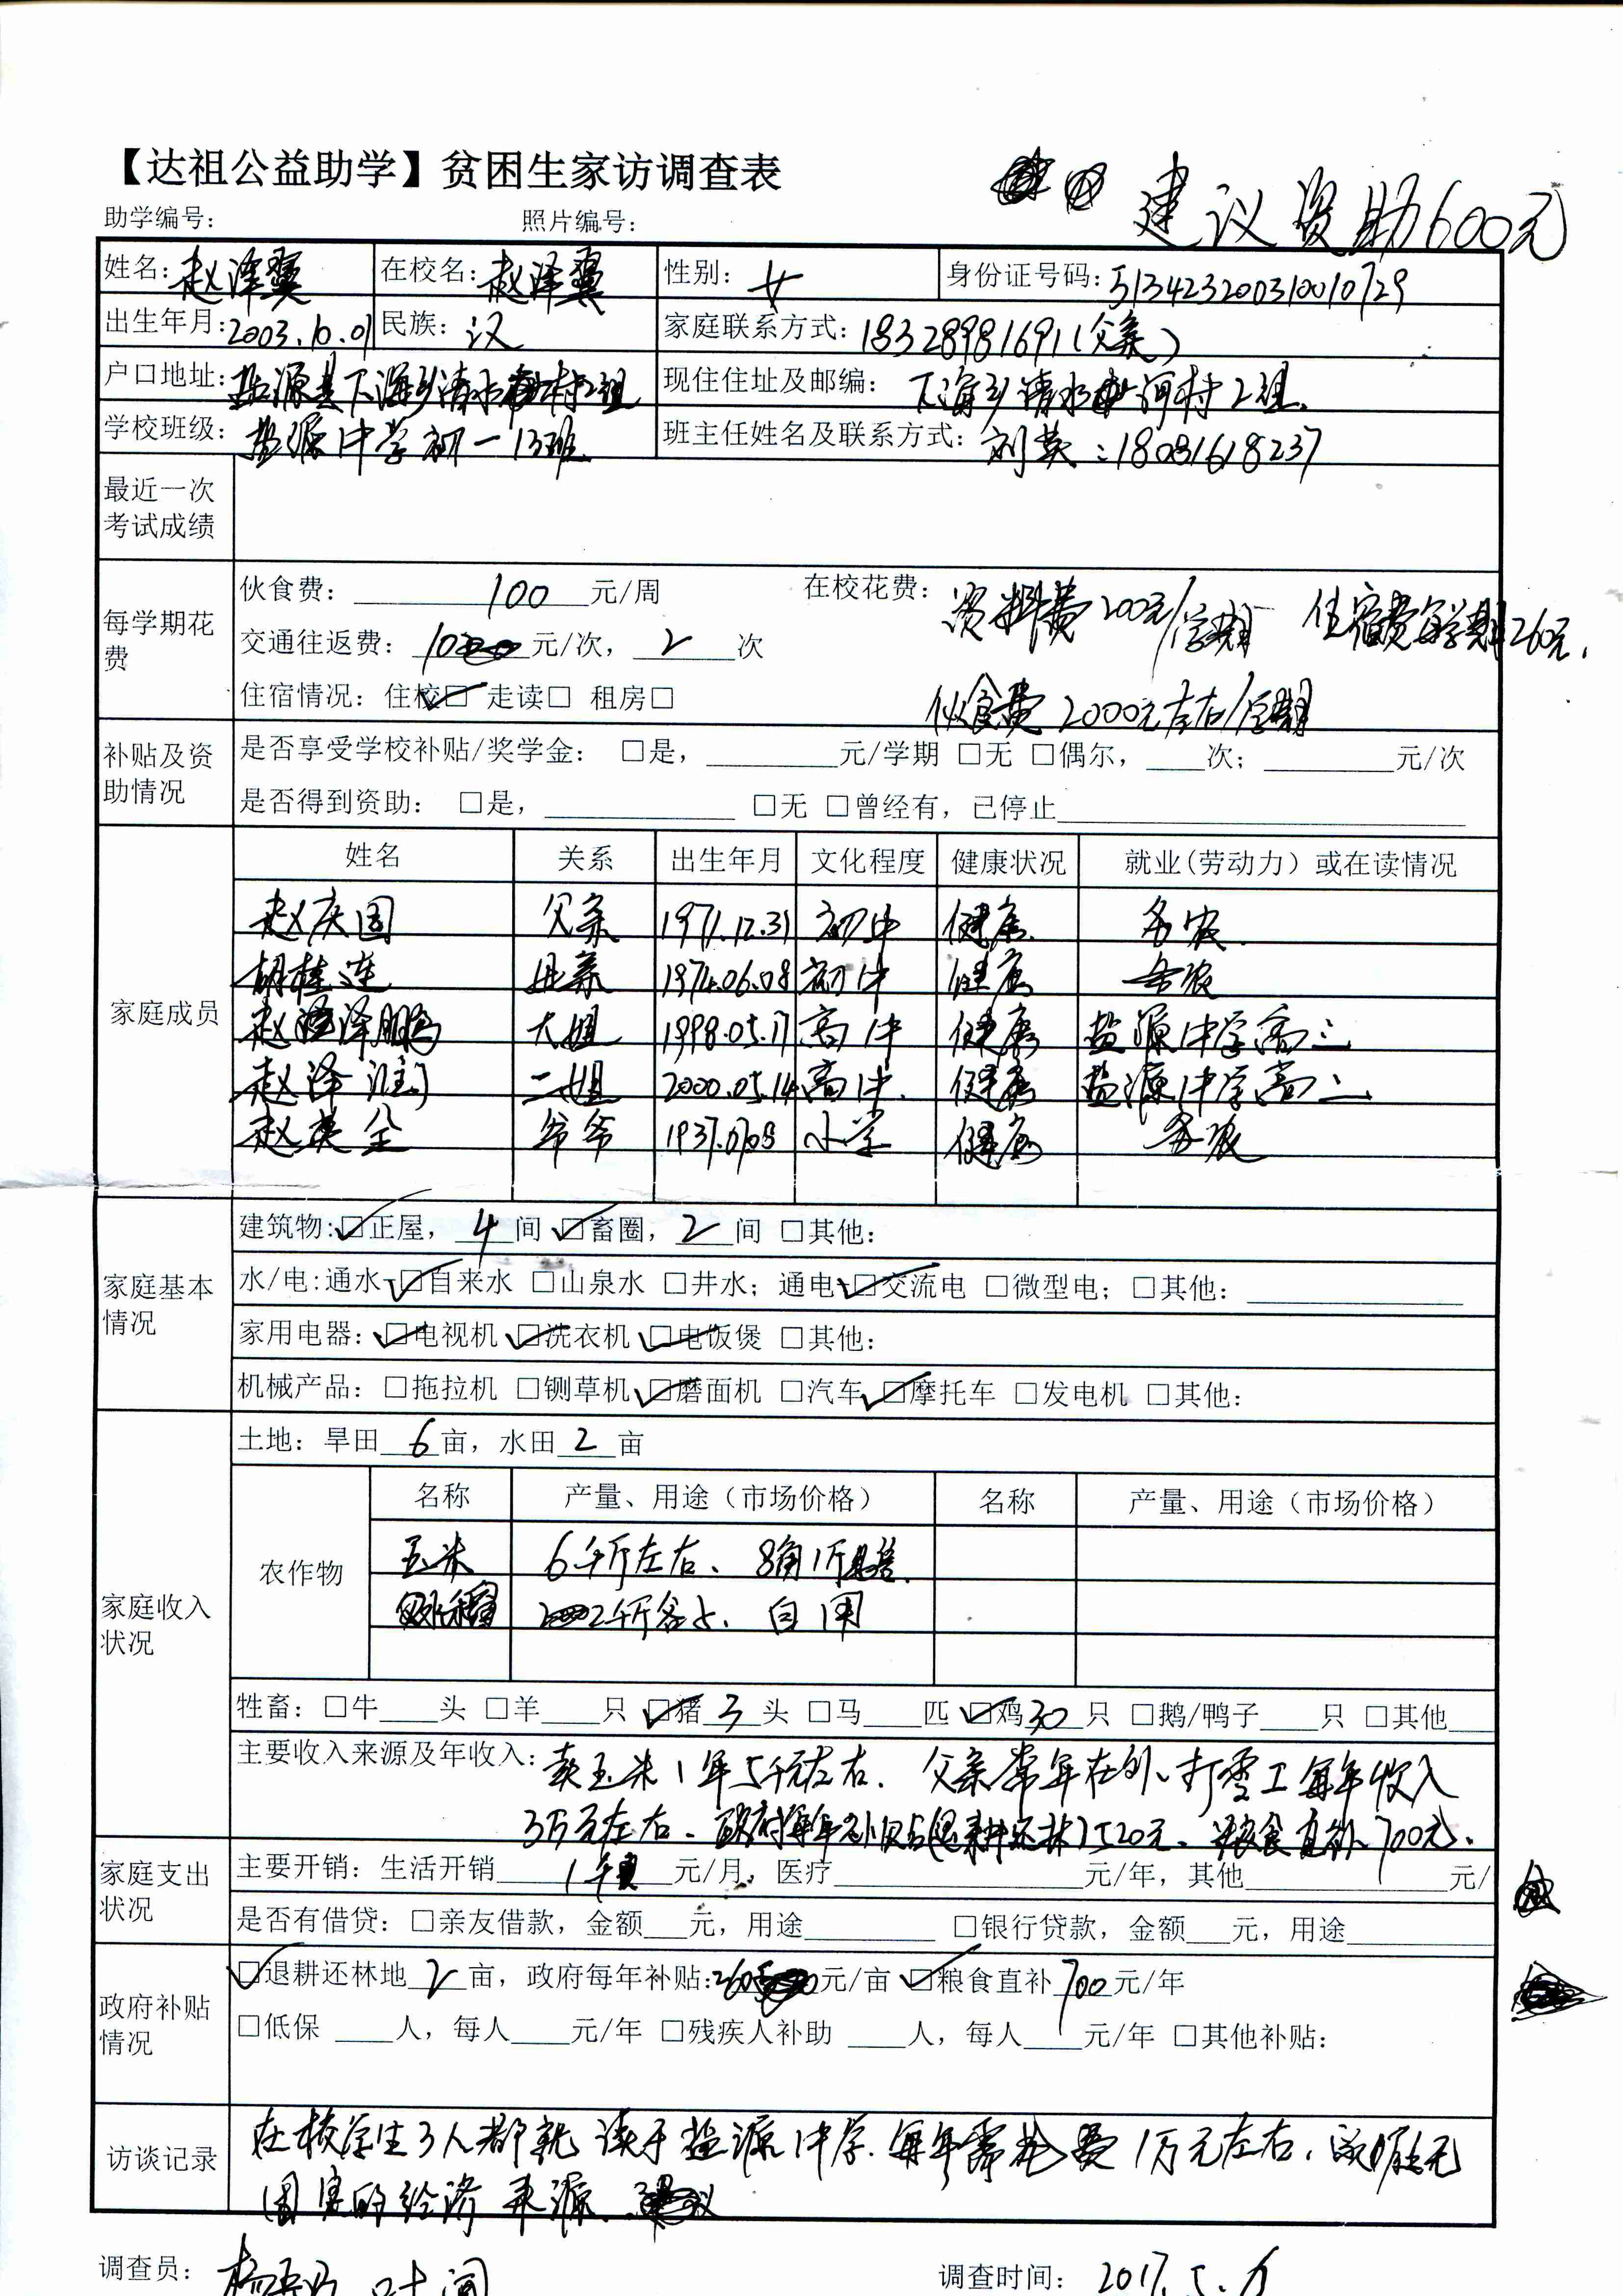 【达祖公益助学】贫困生家访调查表
建议资助600元
助学编号： 照片编号：
姓名：赵泽翼 在校名：赵泽翼 性别：女 身份证号码：513423200310010729
出生年月：2003.10.01 民族：汉 家庭联系方式：18328981691（父亲）
户口地址：盐源县下海乡清水河村2组 现住住址及邮编：下海乡清水河村2组
学校班级：盐源中学初一13班 班主任姓名及联系方式：刘英：18081618237
最近一次考试成绩
每学期花费
伙食费：100元/周 在校花费：资料费200元/学期 住宿费每学期260元.
交通往返费：10元/次，2次
住宿情况：住校☑ 走读□ 租房□ 伙食费2000元左右/学期
补贴及资助情况
是否享受学校补贴/奖学金：□是，____元/学期 □无 □偶尔，____次；____元/次
是否得到资助：□是，____ □无 □曾经有，已停止____
家庭成员
姓名 关系 出生年月 文化程度 健康状况 就业(劳动力）或在读情况
赵庆国 父亲 1971.12.31 初中 健康 务农
胡桂连 母亲 1974.06.08 初中 健康 务农
赵泽鹏 大姐 1998.05.17 高中 健康 盐源中学高三
赵泽 二姐 2000.05.14 高中 健康 盐源中学高二
赵英全 爷爷 1937.07.08 小学 健康 务农
家庭基本情况
建筑物:☑正屋，4间 ☑畜圈，2间 □其他：
水/电:通水 ☑自来水 □山泉水 □井水；通电 ☑交流电 □微型电；□其他：____
家用电器：☑电视机 ☑洗衣机 ☑电饭煲 □其他：
机械产品：□拖拉机 □铡草机 ☑磨面机 □汽车 ☑摩托车 □发电机 □其他：
家庭收入状况
土地：旱田6亩，水田2亩
农作物
名称 产量、用途（市场价格） 名称 产量、用途（市场价格）
玉米 6千斤左右、8角1斤
水稻 2千斤多点、自用
牲畜：□牛____头 □羊____只 ☑猪3头 □马____匹 ☑鸡30只 □鹅/鸭子____只 □其他____
主要收入来源及年收入：卖玉米1年5千元左右. 父亲常年在外、打零工每年收入
3万元左右. 政府每年补贴(退耕还林)520元、粮食直补700元.
家庭支出状况
主要开销：生活开销1千元/月，医疗____元/年，其他____元/
是否有借贷：□亲友借款，金额___元，用途____ □银行贷款，金额___元，用途____
政府补贴情况
☑退耕还林地2亩，政府每年补贴:260元/亩 ☑粮食直补700元/年
□低保 ____人，每人____元/年 □残疾人补助 ____人，每人____元/年 □其他补贴：
访谈记录
在校学生3人都就读于盐源中学. 每年需花费1万元左右. 家庭无
固定的经济来源.
调查员： 调查时间：2017.5.6